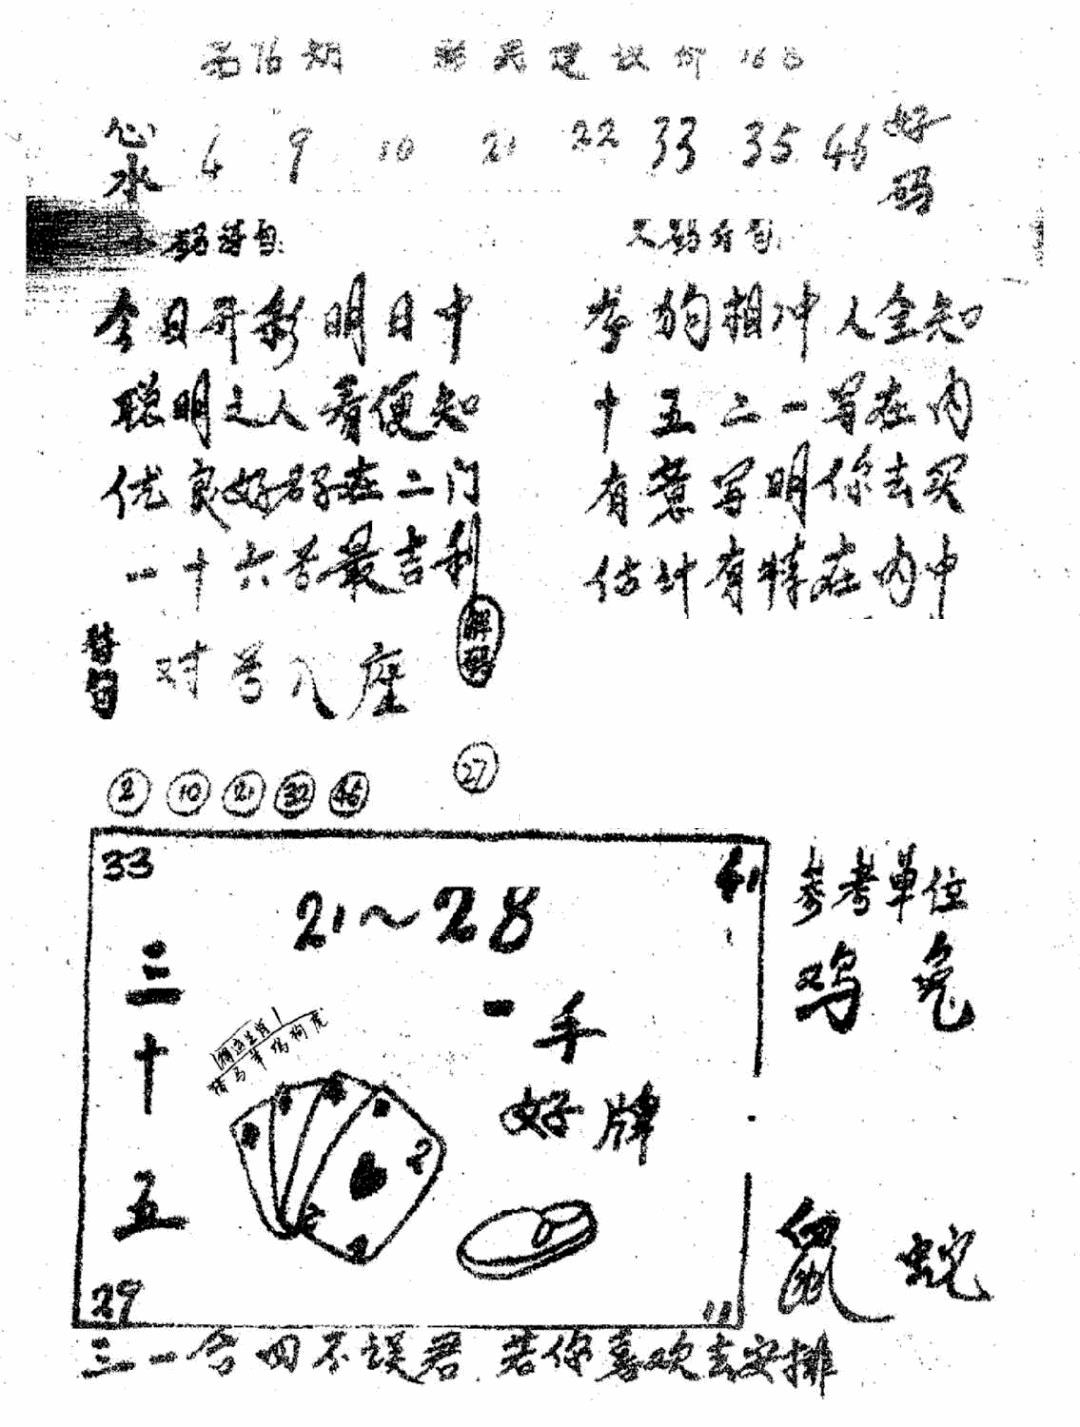 第76期 彩民建议价16
心水 6 9 10 21 22 33 35 46 好码
今日开彩明日中
聪明之人看便知
优良好码在二门
一十六号最吉利
狗相冲人全知
十五二一写在内
有意写明你去买
估计有特在内中
特句 对号入座 解码
2 10 21 32 46 27
33 41
21~28
三十五
一手好牌
猪马羊鸡狗虎
29 11
参考单位
鸡 兔
鼠 蛇
三一合四不误君 若你喜欢去安排